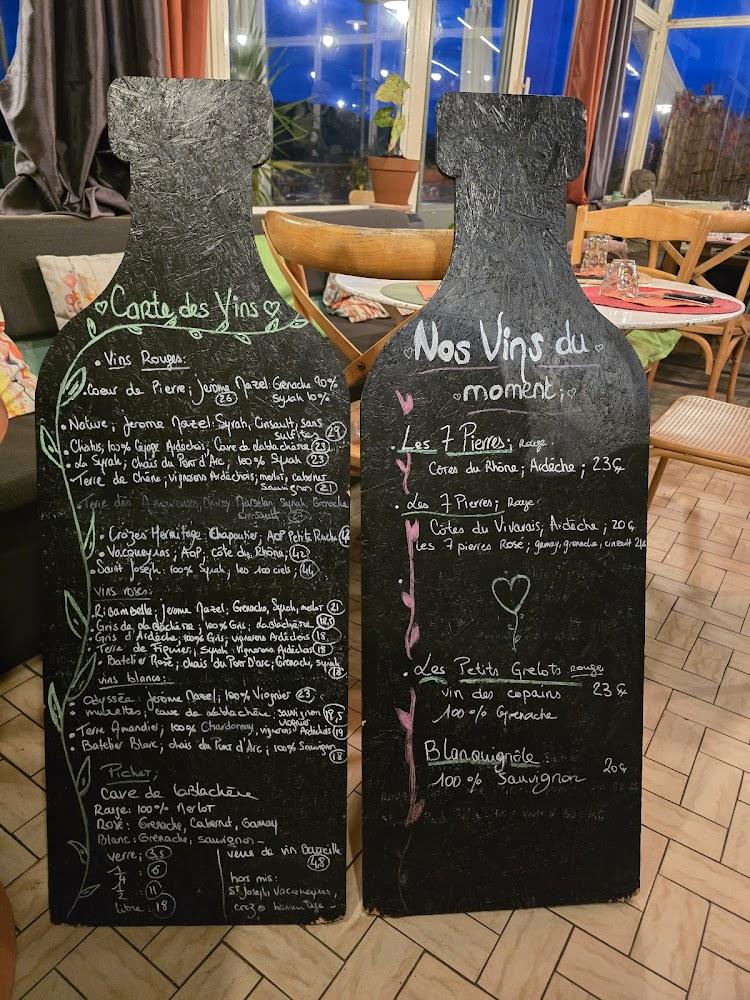 Carte des Vins
• Vins Rouges:
• Coeur de Pierre; Jerome Mazel: Grenache 90%
26 Syrah 10%
• Nature; Jerome Mazel: Syrah, Cinsault, sans
sulfites 29
• Chatus, 100% Cépage Ardéchois; Cave de lablachère 23
• La Syrah; chais du Pont d'Arc, 100% Syrah 23
• Terre de Chêne; vignerons Ardéchois; merlot, cabernet
Sauvignon 21
• Terre des Amoureuses; Marselan, Syrah, Grenache
Cinsault
• Crozes Hermitage Chapoutier; AOP Petite Ruche
• Vacqueyras; AOP, Côte du Rhône; 42
• Saint Joseph: 100% Syrah, les 100 ciels; 44
Vins roses:
Ribambelle: Jerome Mazel; Grenache, Syrah, merlot 21
• Gris de lablachère; 100% Gris; lablachère 18,5
• Gris d'Ardèche; 100% Gris; vignerons Ardéchois 18
• Terre de Figuier; Syrah. Vignerons Ardéchois 18
• Batelier Rosé; chais du Pont D'Arc; Grenache, Syrah
18
vins blancs:
• Odyssée: Jerome Mazel; 100% Viognier 23
• cave de lablachère: sauvignon 18,5
viognier
• Terre Amandier; 100% Chardonnay, vignerons Ardéchois 19
• Batelier Blanc; chais du Pont d'Arc; 100% Sauvignon
18
Pichet;
Cave de lablachère
Rouge: 100% Merlot
Rosé: Grenache, Cabernet, Gamay
Blanc: Grenache, sauvignon -
verre; 3,5
1/4 : 6
1/2 : 11
litre : 18
verre de vin Bouteille
4,8
hors mis:
St Joseph, Vacqueyras,
croze hermitage -
Nos Vins du
moment;
• Les 7 Pierres; Rouge
Côtes du Rhône; Ardèche; 23€
• Les 7 Pierres; Rouge
Côtes du Vivarais; Ardèche; 20€
les 7 pierres Rosé; gamay, grenache, cinsault
• Les Petits Grelots rouge
vin des copains 23€
100% Grenache
Blanquignôle:
100% Sauvignon 20€